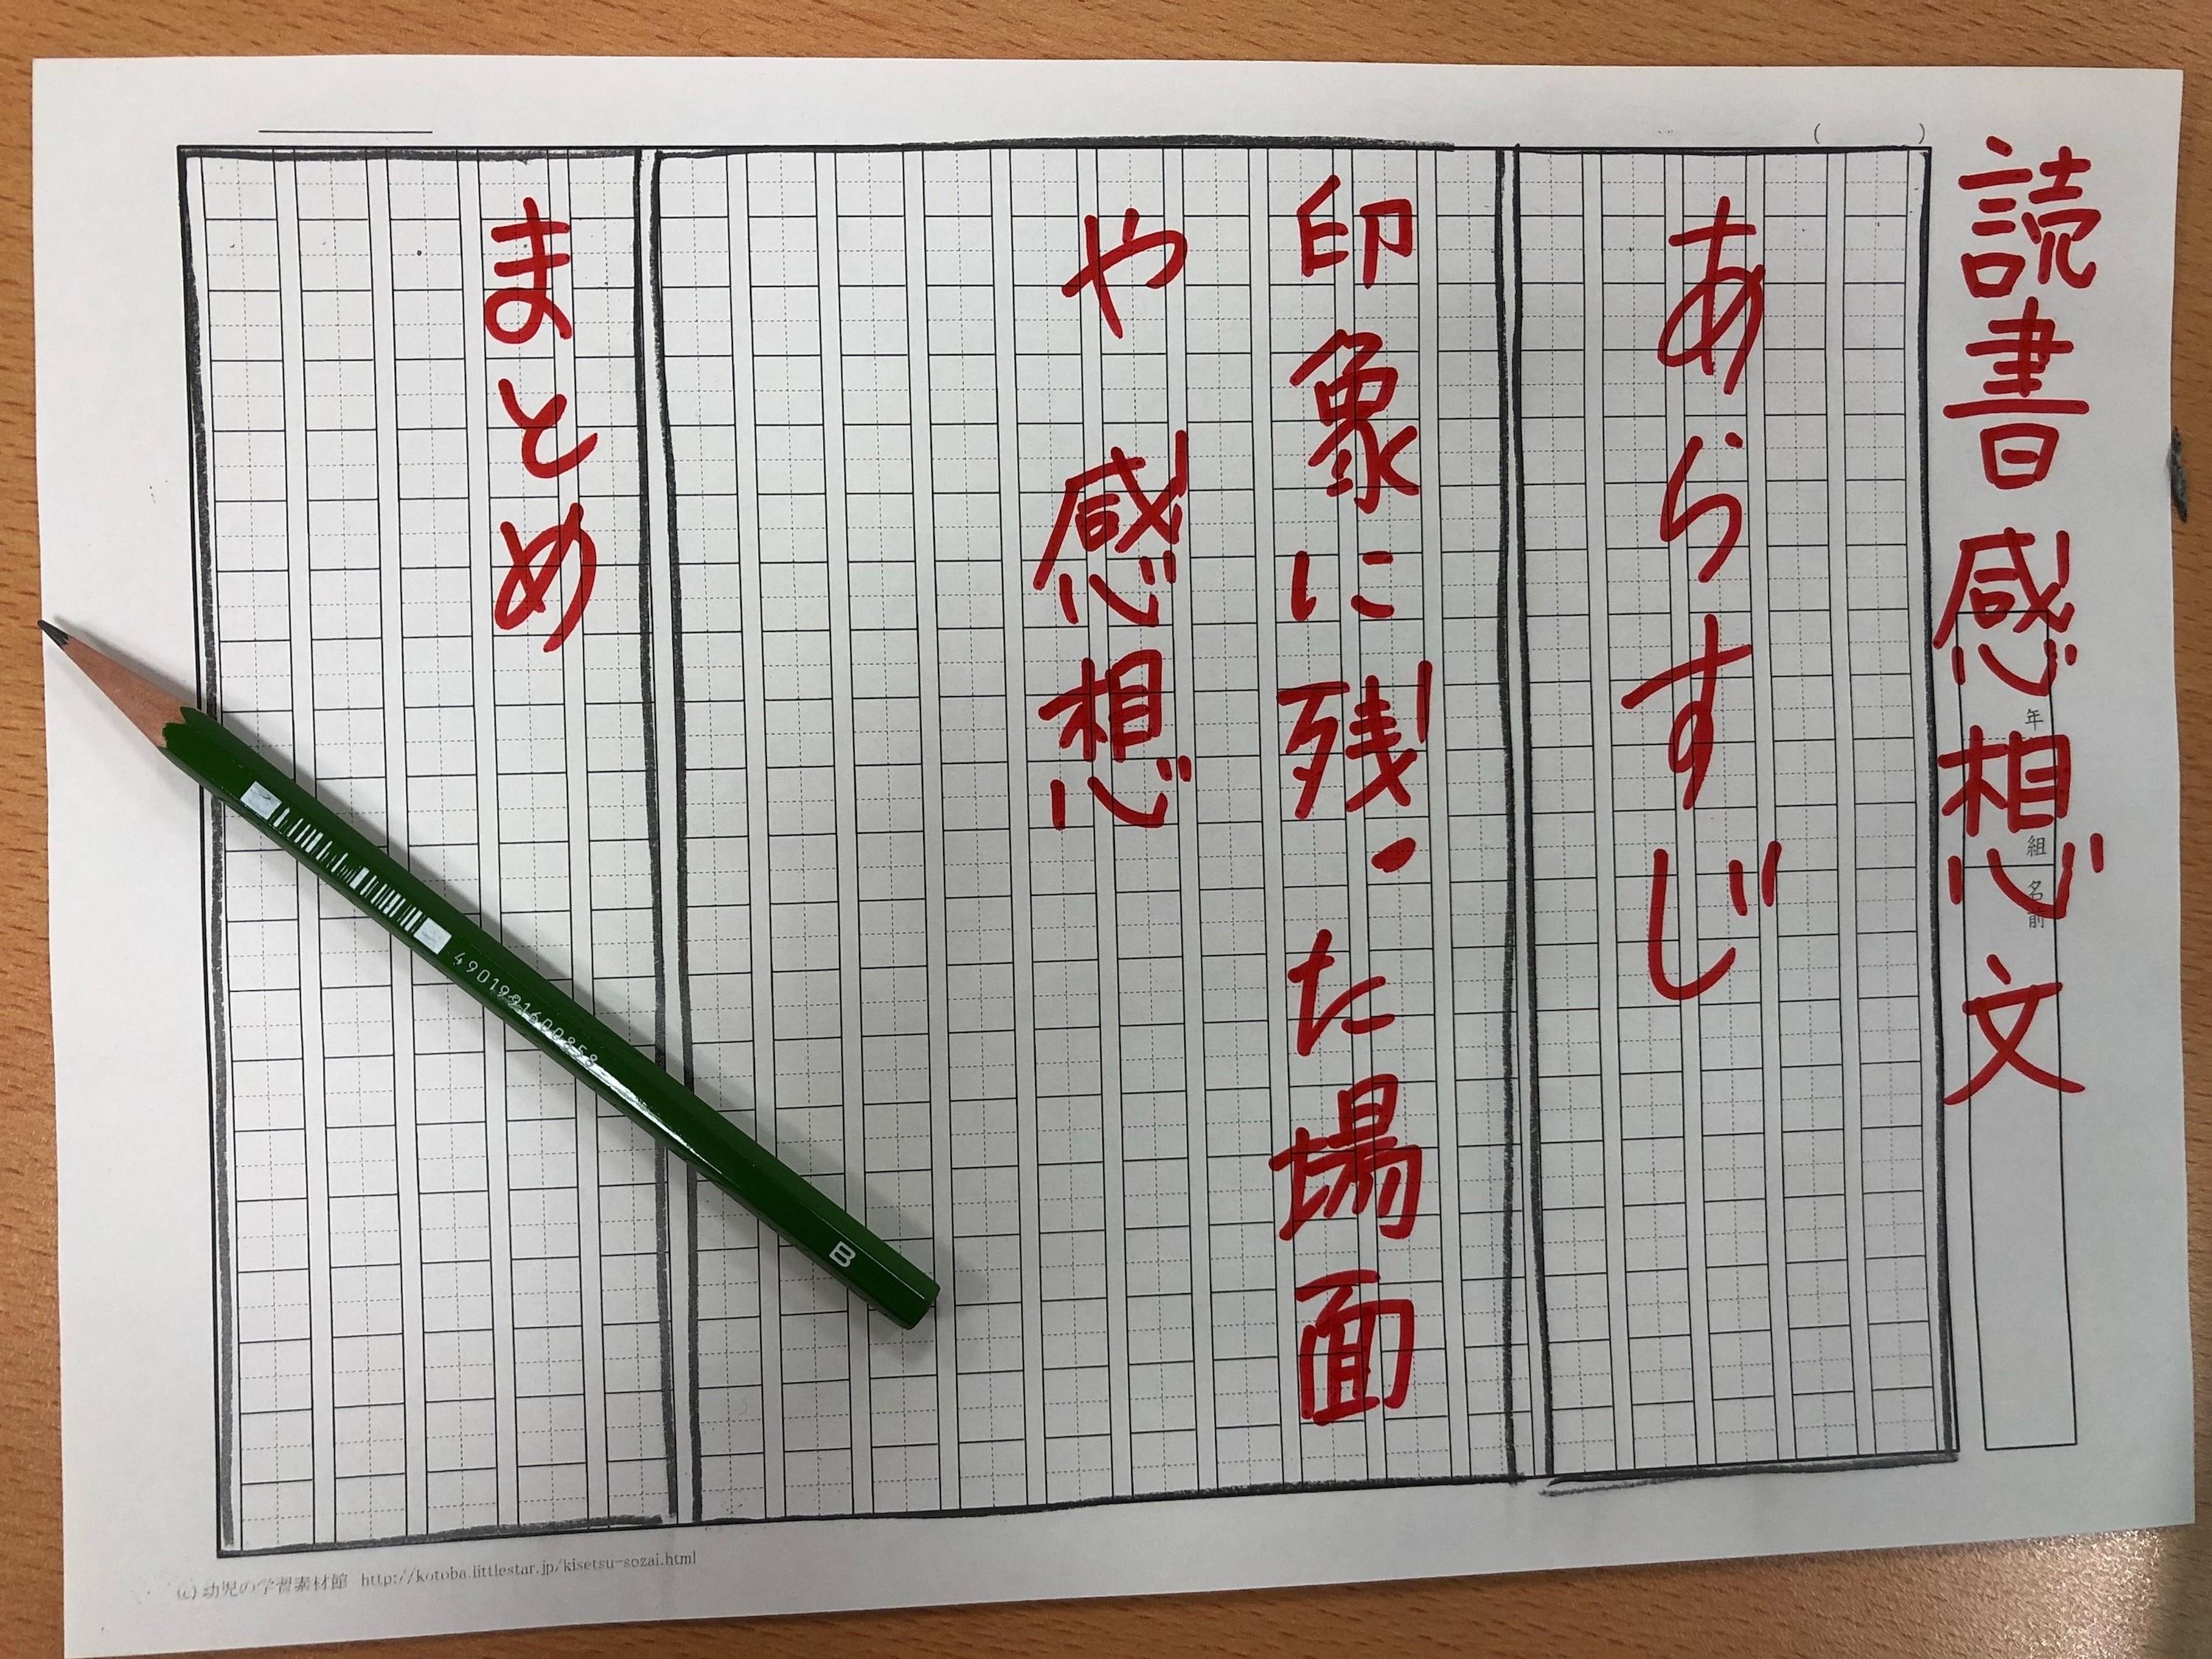 読書感想文
年 組 名前
( )
あらすじ
印象に残った場面
や感想
まとめ
4901991600858
B
(c) 幼児の学習素材館 http://kotoba.littlestar.jp/kisetsu-sozai.html